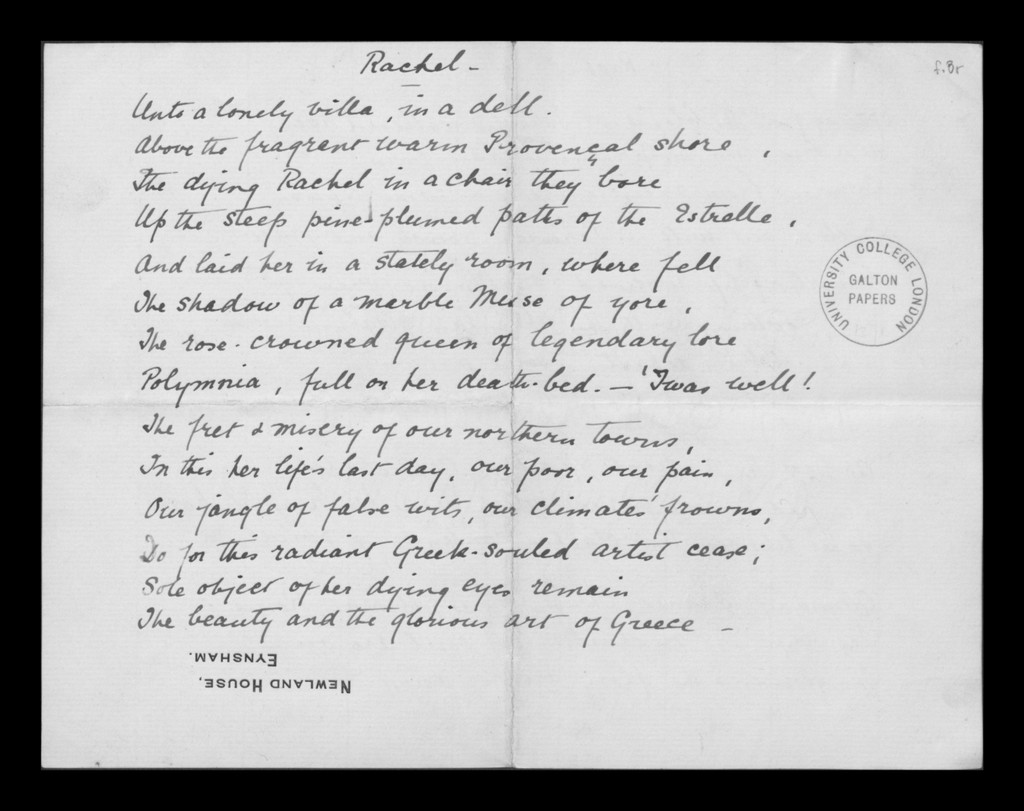 Rachel –
f.3r
Unto a lonely villa, in a dell.
Above the fragrent warm Provencal shore,
The dying Rachel in a chair they bore
Up the steep pine-plumed paths of the Estrelle,
And laid her in a stately room, where fell
The shadow of a marble Muse of yore,
The rose-crowned queen of legendary lore
Polymnia, full on her death-bed. – 'Twas well!
The fret & misery of our northern towns,
In this her life's last day, our poor, our pain,
Our jangle of false wits, our climate's frowns,
Do for this radiant Greek-souled artist cease;
Sole object of her dying eyes remain
The beauty and the glorious art of Greece –
UNIVERSITY COLLEGE LONDON
GALTON
PAPERS
NEWLAND HOUSE,
EYNSHAM.